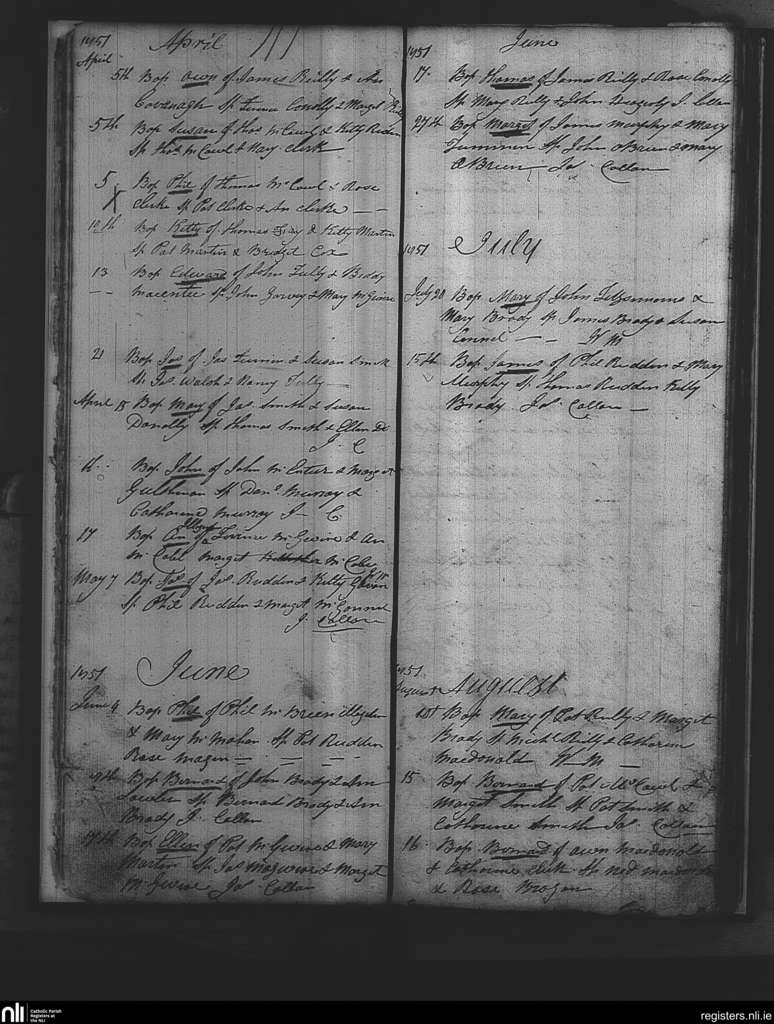 1851 April
April
5th Bap Own of James Reilly & An
Cavanagh Sp Conolly & Margt Reilly
5th Bap Susan of Thos McCawl & Kitty
Sp Thos McCawl & Mary Clerk
5 Bap Phil of Thomas McCawl & Rose
X Clerke Sp Pat Clerke & An Clerke
12th Bap Kitty of Thomas & Kitty Martin
Sp Pat Martin & Bridget Cox
13 Bap Edward of John Tully & Biddy
Macentee Sp John Garvey & Mary McGwire
21 Bap Jas of Jas & Susan Smith
Sp Jas Walsh & Nancy Tully
April 15 Bap Mary of Jas Smith & Susan
Donolly Sp Thomas Smith & Ellen
J. C
Bap John of John & Margt
Sp Danl Murray &
Catharine Murray J C
17 Bap An of McGwire & An
McCabe Margit McCabe
May 7 Bap Jas of Jas Rudden & Kitty
Sp Phil Rudden & Margt McGonnel
J. Collan
1851 June
June 4 Bap Phil of Phil McBrien
& Mary McMahon Sp Pat Rudden
Rose Magen
Bap Bernard of John Brady & An
Lawler Sp Bernard Brady & An
Brady J. Collan
Bap Ellen of Pat McGwire & Mary
Martin Sp Jas Magwire & Margt
McGwire Jas. Collan
1851 June
17. Bap Thomas of James Reilly & Rose Conolly
Sp Mary Reilly & John J. Collan
27th Bap Margt of James Murphy & Mary
Sp John OBrien & Mary
OBrien Jas. Collan
1851 July
July 20 Bap Mary of John Fitzsimons &
Mary Brady Sp James Brady & Susan
Connel W M
15th Bap James of Phil Rudden & Mary
Murphy Sp Thomas Rudden Kitty
Brady Jas. Collan
1851
August August
1st Bap Mary of Pat Reilly & Margit
Brady Sp Michl Reilly & Catharine
Macdonald W M
15 Bap Bernard of Pat McCawl &
Margit Smith Sp Pat Smith &
Catharine Smith Jas. Collan
16 Bap Bernard of Own Macdonald
& Catharine Clerk Sp Ned
& Rose Brogan
nli
Catholic Parish
Registers at
the NLI
registers.nli.ie